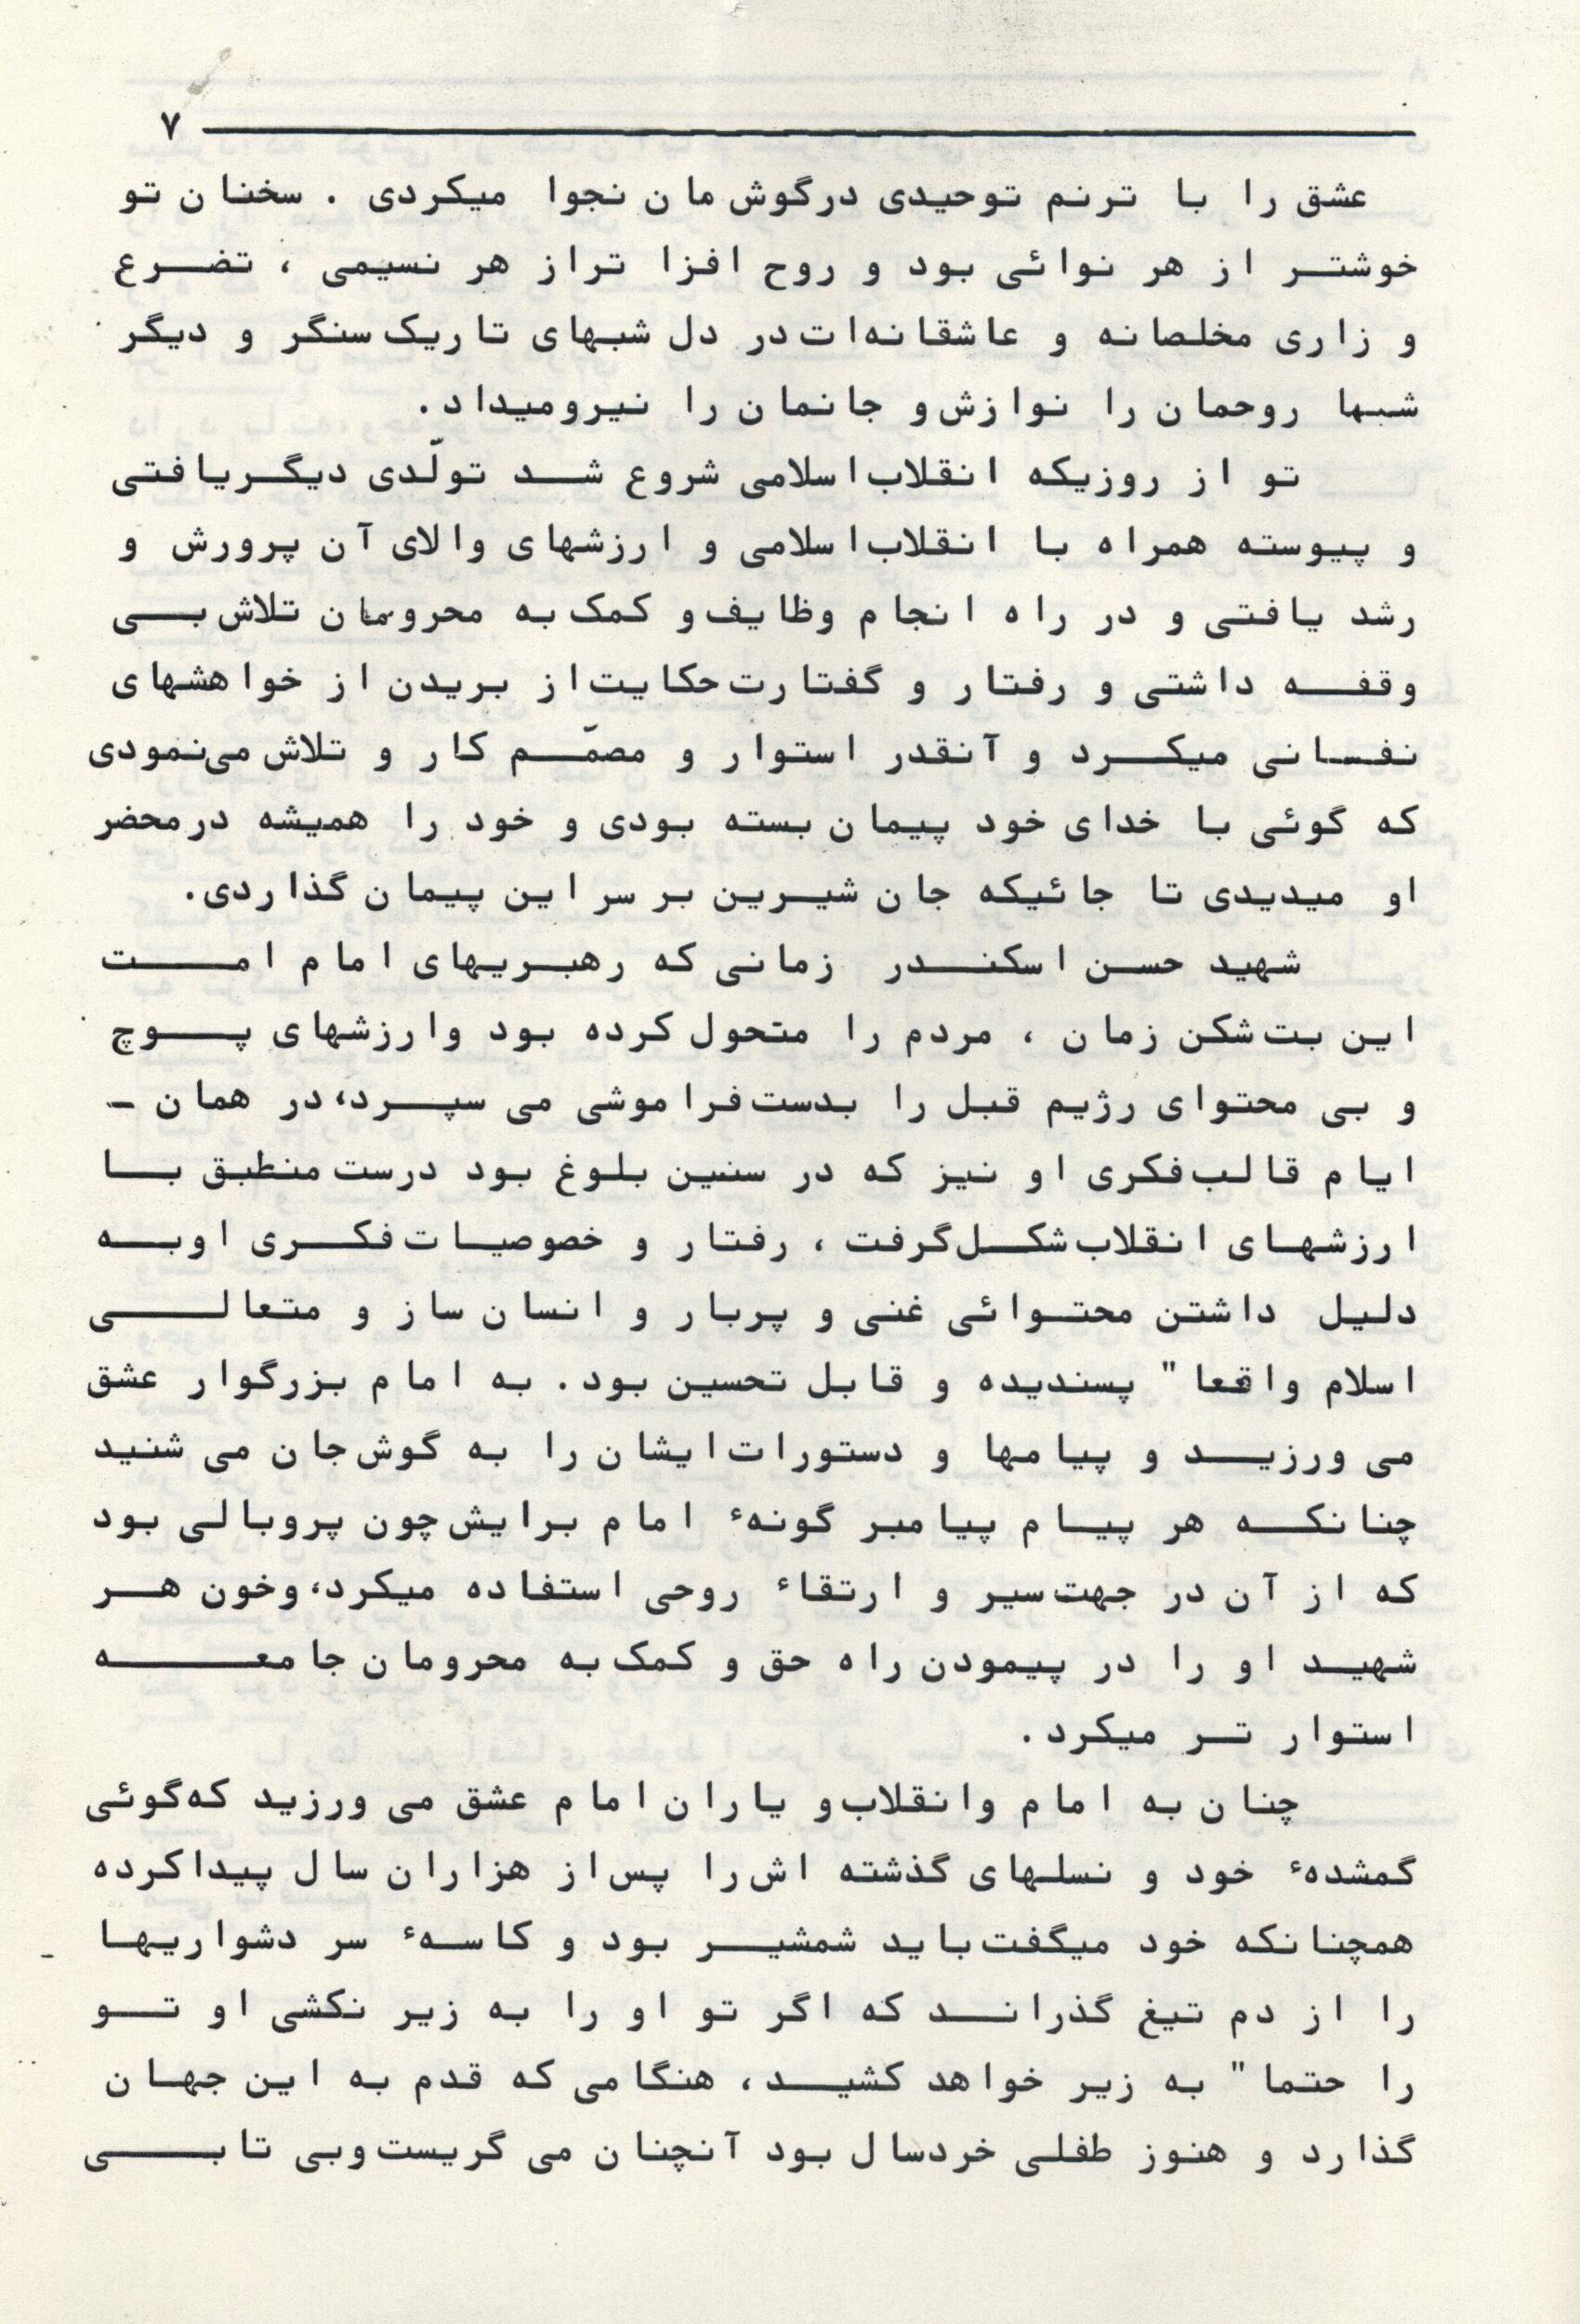 ۷
عشق را با ترنم توحیدی درگوش مان نجوا میکردی . سخنان تو
خوشتر از هر نوائی بود و روح افزا تراز هر نسیمی ، تضرع
و زاری مخلصانه و عاشقانه‌ات در دل شبهای تاریک سنگر و دیگر
شبها روحمان را نوازش و جانمان را نیرومیداد.
تو از روزیکه انقلاب اسلامی شروع شد تولّدی دیگریافتی
و پیوسته همراه با انقلاب اسلامی و ارزشهای والای آن پرورش و
رشد یافتی و در راه انجام وظایف و کمک به محرومان تلاش بی
وقفه داشتی و رفتار و گفتارت حکایت از بریدن از خواهشهای
نفسانی میکرد و آنقدر استوار و مصمّم کار و تلاش می‌نمودی
که گوئی با خدای خود پیمان بسته بودی و خود را همیشه درمحضر
او میدیدی تا جائیکه جان شیرین بر سر این پیمان گذاردی.
شهید حسن اسکندر زمانی که رهبریهای امام امت
این بت شکن زمان ، مردم را متحول کرده بود وارزشهای پوچ
و بی محتوای رژیم قبل را بدست فراموشی می سپرد، در همان -
ایام قالب فکری او نیز که در سنین بلوغ بود درست منطبق با
ارزشهای انقلاب شکل گرفت ، رفتار و خصوصیات فکری اوبه
دلیل داشتن محتوائی غنی و پربار و انسان ساز و متعالی
اسلام واقعا" پسندیده و قابل تحسین بود. به امام بزرگوار عشق
می ورزید و پیامها و دستورات ایشان را به گوش جان می شنید
چنانکه هر پیام پیامبر گونهٔ امام برایش چون پروبالی بود
که از آن در جهت سیر و ارتقاء روحی استفاده میکرد، وخون هر
شهید او را در پیمودن راه حق و کمک به محرومان جامعه
استوار تر میکرد.
چنان به امام وانقلاب و یاران امام عشق می ورزید که گوئی
گمشدهٔ خود و نسلهای گذشته اش را پس از هزاران سال پیداکرده
همچنانکه خود میگفت باید شمشیر بود و کاسهٔ سر دشواریها
را از دم تیغ گذراند که اگر تو او را به زیر نکشی او تو
را حتما" به زیر خواهد کشید، هنگامی که قدم به این جهان
گذارد و هنوز طفلی خردسال بود آنچنان می گریست وبی تابی